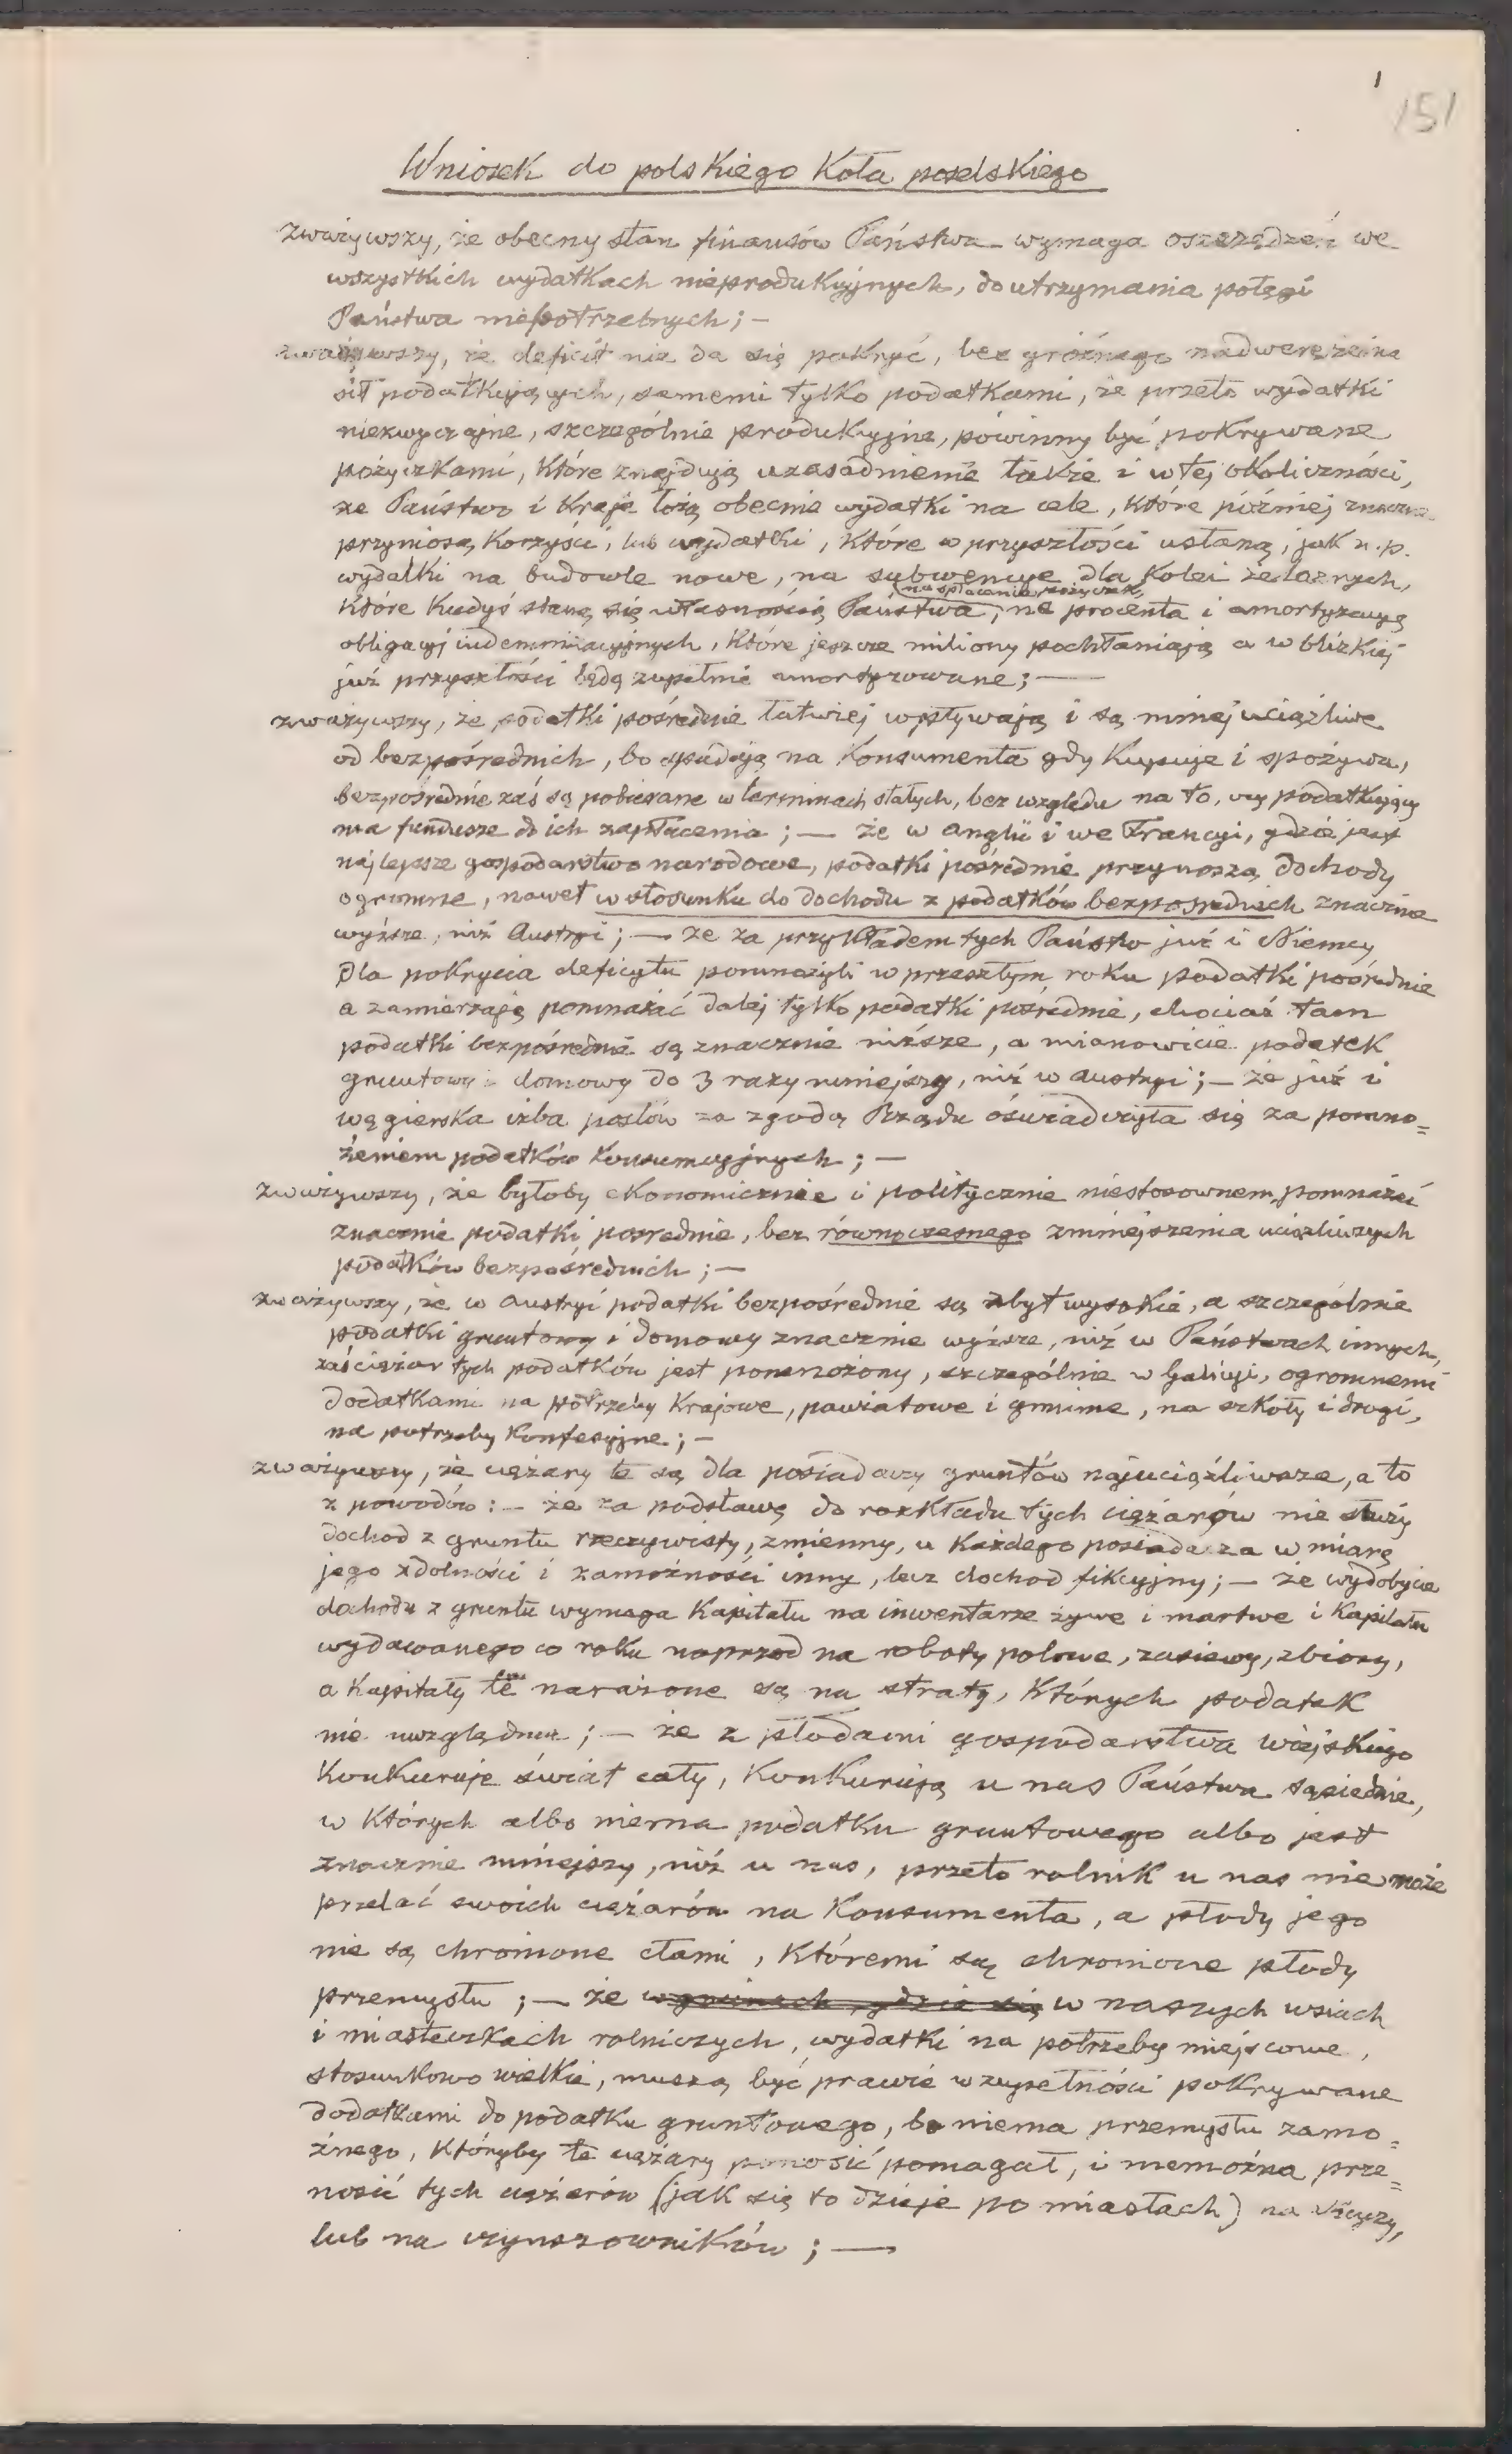 1
151
Wniosek do polskiego Koła poselskiego
zważywszy, że obecny stan finansów Państwa wymaga oszczędzeń we
wszystkich wydatkach nieprodukcyjnych, do utrzymania potęgi
Państwa niepotrzebnych; —
zważywszy, że deficit nie da się pokryć, bez groźnego nadwerężenia
sił podatkujących, samemi tylko podatkami, że przeto wydatki
niezwyczajne, szczególnie produkcyjne, powinny być pokrywane
pożyczkami, które znajdują uzasadnienie także i w tej okoliczności,
że Państwo i Kraje łożą obecnie wydatki na cele, które później znaczne
przyniosą korzyści, lub wydatki, które w przyszłości ustaną, jak n.p.
wydatki na budowle nowe, na subwencye dla kolei żelaznych,
na spłacenie pożyczek,
które kiedyś staną się własnością Państwa, na procenta i amortyzacyą
obligacyj indemnizacyjnych, które jeszcze miliony pochłaniają a w blizkiej
już przyszłości będą zupełnie amortyzowane; —
zważywszy, że podatki pośrednie łatwiej wpływają i są mniej uciążliwe
od bezpośrednich, bo spadają na konsumenta gdy kupuje i spożywa,
bezpośrednie zaś są pobierane w terminach stałych, bez względu na to, czy podatkujący
ma fundusze do ich zapłacenia; — że w Anglii i we Francyi, gdzie jest
najlepsze gospodarstwo narodowe, podatki pośrednie przynoszą dochody
ogromne, nawet w stosunku do dochodu z podatków bezpośrednich znacznie
wyższe, niż Austryi; — że za przykładem tych Państw już i Niemcy
dla pokrycia deficytu pomnożyli w przeszłym roku podatki pośrednie
a zamierzają pomnażać dalej tylko podatki pośrednie, chociaż tam
podatki bezpośrednie są znacznie niższe, a mianowicie podatek
gruntowy i domowy do 3 razy mniejszy, niż w Austryi; — że już i
węgierska izba posłów za zgodą Rządu oświadczyła się za pomno=
żeniem podatków konsumcyjnych; —
zważywszy, że byłoby ekonomicznie i politycznie niestosownem, pomnażać
znacznie podatki pośrednie, bez równoczesnego zmniejszenia uciążliwszych
podatków bezpośrednich; —
zważywszy, że w Austryi podatki bezpośrednie są zbyt wysokie, a szczególnie
podatki gruntowy i domowy znacznie wyższe, niż w Państwach innych,
zaś ciężar tych podatków jest pomnożony, szczególnie w Galicyi, ogromnemi
dodatkami na potrzeby Krajowe, powiatowe i gminne, na szkoły i drogi,
na potrzeby konfesyjne; —
zważywszy, że ciężary te są dla posiadaczy gruntów najuciążliwsze, a to
z powodów: — że za podstawę do rozkładu tych ciężarów nie służy
dochod z gruntu rzeczywisty, zmienny, u każdego posiadacza w miarę
jego zdolności i zamożności inny, lecz dochod fikcyjny; — że wydobycie
dochodu z gruntu wymaga kapitału na inwentarze żywe i martwe i kapitału
wydawanego co roku naprzod na roboty polowe, zasiewy, zbiory,
a kapitały te narażone są na straty, których podatek
nie uwzględnia; — że z płodami gospodarstwa wiejskiego
konkuruje świat cały, konkurują u nas Państwa sąsiednie,
w których albo niema podatku gruntowego albo jest
znacznie mniejszy, niż u nas, przeto rolnik u nas nie może
przelać swoich ciężarów na konsumenta, a płody jego
nie są chronione cłami, któremi są chronione płody
przemysłu; — że w gminach, gdzie się w naszych wsiach
i miasteczkach rolniczych, wydatki na potrzeby miejscowe,
stosunkowo wielkie, muszą być prawie w zupełności pokrywane
dodatkami do podatku gruntowego, bo niema przemysłu zamo=
żnego, któryby te ciężary ponosić pomagał, i niemożna prze=
nosić tych ciężarów (jak się to dzieje po miastach) na
lub na czynszowników; —